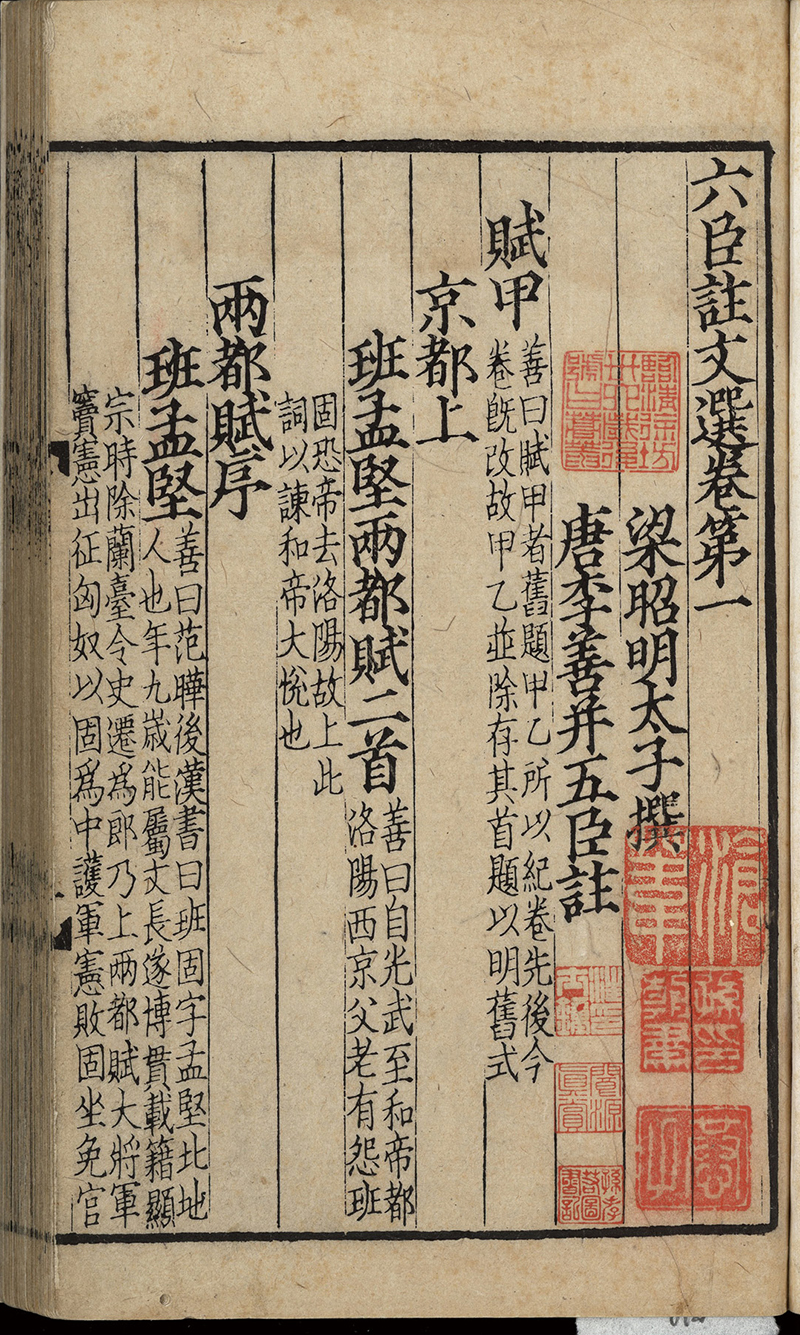 六臣註文選卷第一
梁昭明太子撰
唐李善并五臣註
賦甲
善曰賦甲者舊題甲乙所以紀卷先後今
卷既改故甲乙並除存其首題以明舊式
京都上
班孟堅兩都賦二首
善曰自光武至和帝都
洛陽西京父老有怨班
固恐帝去洛陽故上此
詞以諫和帝大悅也
兩都賦序
班孟堅
善曰范曄後漢書曰班固字孟堅北地
人也年九歲能屬文長遂博貫載籍顯
宗時除蘭臺令史遷為郎乃上兩都賦大將軍
竇憲出征匈奴以固為中護軍憲敗固坐免官